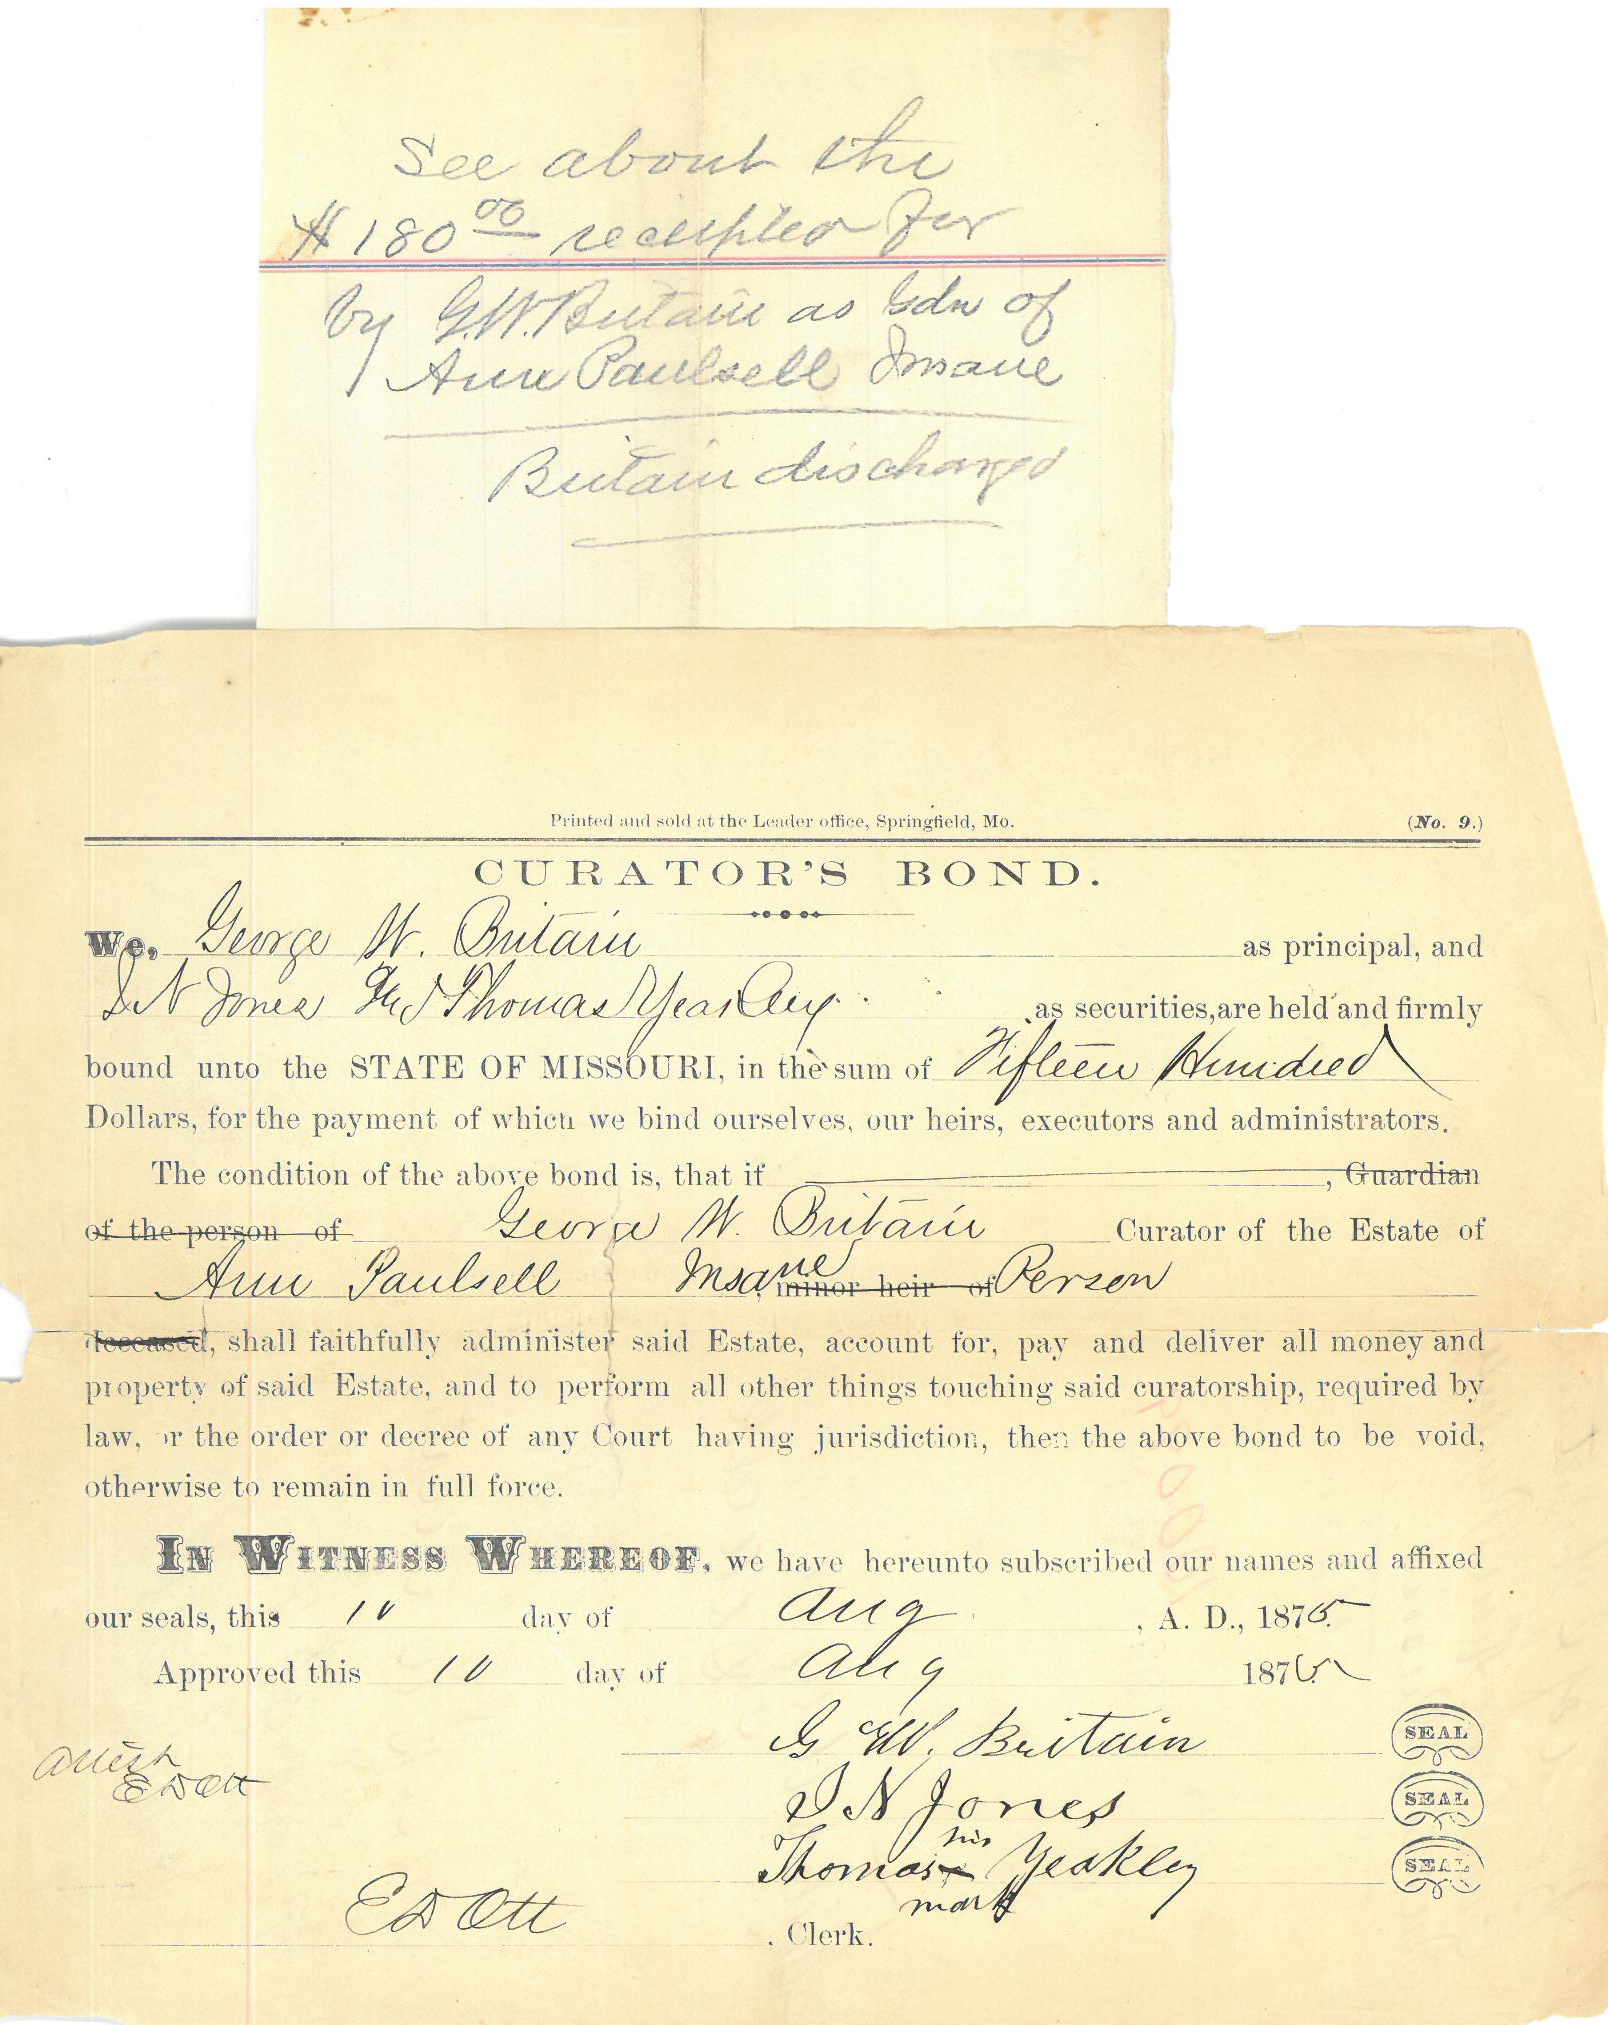 See about the
$180 00 receipted for
by G.W. Britain as Gdn of
Ann Paulsell Insane
Britain discharged
Printed and sold at the Leader office, Springfield, Mo. (No. 9.)
CURATOR'S BOND.
We, George W. Britain as principal, and
I N Jones And Thomas Yeakley as securities, are held and firmly
bound unto the STATE OF MISSOURI, in the sum of Fifteen Hundred
Dollars, for the payment of which we bind ourselves, our heirs, executors and administrators.
The condition of the above bond is, that if , Guardian
of the person of George W. Britain Curator of the Estate of
Ann Paulsell Insane minor heir of Person
deceased, shall faithfully administer said Estate, account for, pay and deliver all money and
property of said Estate, and to perform all other things touching said curatorship, required by
law, or the order or decree of any Court having jurisdiction, then the above bond to be void,
otherwise to remain in full force.
IN WITNESS WHEREOF, we have hereunto subscribed our names and affixed
our seals, this 10 day of Aug , A. D., 1875
Approved this 10 day of Aug 1875
G W. Britain SEAL
Attest
E D Ott
I N Jones SEAL
his
Thomas x Yeakley SEAL
mark
E D Ott , Clerk.